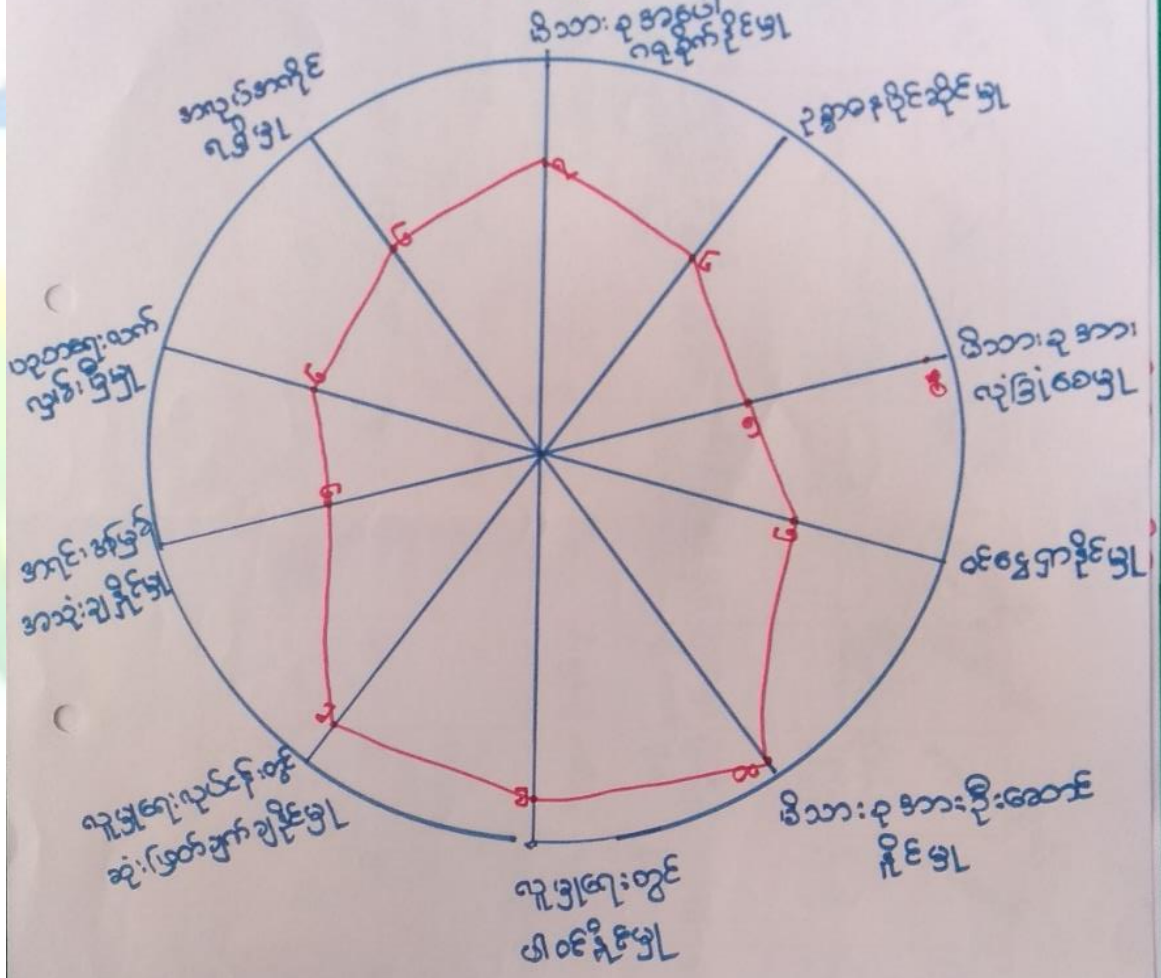 မိသားစုအပေါ်
ဂရုစိုက်နိုင်မှု
ဥစ္စာဓနပိုင်ဆိုင်မှု
၆
မိသားစုအား
လုံခြုံစေမှု
၅
ဝင်ရွေ့ရှာနိုင်မှု
၆
မိသားစုအားဦးဆောင်
နိုင်မှု
လူမှုရေးတွင်
ပါဝင်နိုင်မှု
လူမှုရေးလုပ်ငန်းတွင်
ဆုံးဖြတ်ချက်ချနိုင်မှု
အရင်းအမြစ်
အသုံးချနိုင်မှု
ပညာရေးလက်
လှမ်းမှီမှု
၆
အလုပ်အကိုင်
ရရှိမှု
၆